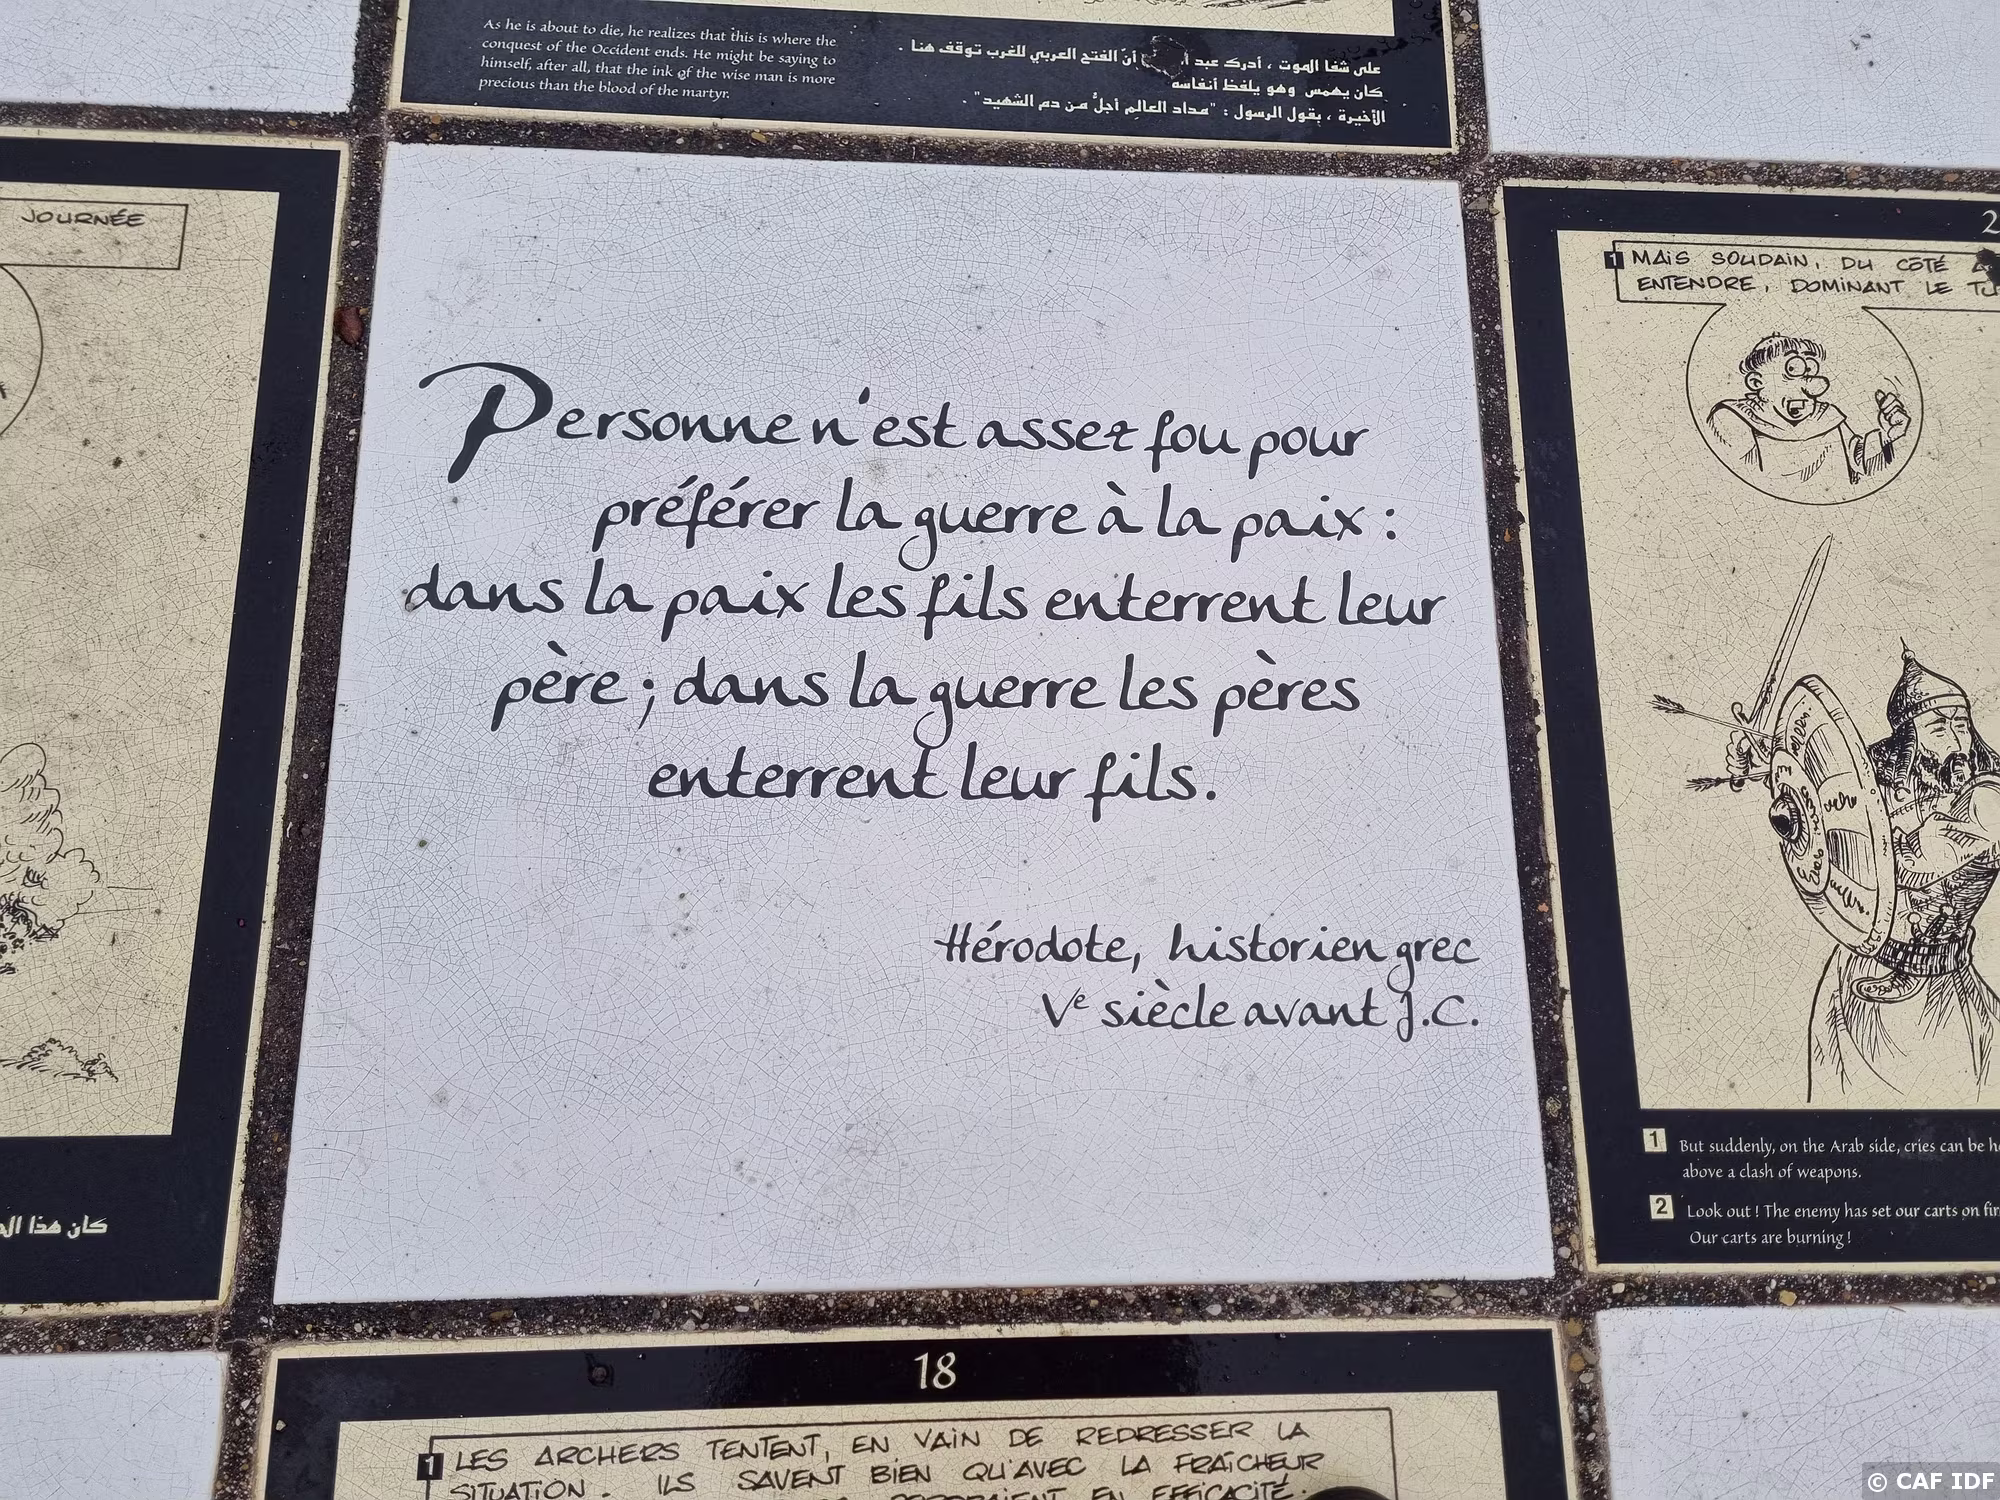 As he is about to die, he realizes that this is where the
conquest of the Occident ends. He might be saying to
himself, after all, that the ink of the wise man is more
precious than the blood of the martyr.
على شفا الموت ، أدرك عبد أنّ الفتح العربي للغرب توقف هنا .
كان يهمس وهو يلفظ أنفاسه
الأخيرة ، بقول الرسول : "مداد العالم أجلُّ من دم الشهيد" .
JOURNÉE
كان هذا
Personne n'est assez fou pour
préférer la guerre à la paix :
dans la paix les fils enterrent leur
père ; dans la guerre les pères
enterrent leur fils.
Hérodote, historien grec
Ve siècle avant J.C.
2
1 MAIS SOUDAIN, DU CÔTÉ
ENTENDRE, DOMINANT LE
1 But suddenly, on the Arab side, cries can be
above a clash of weapons.
2 Look out ! The enemy has set our carts on
Our carts are burning !
18
1 LES ARCHERS TENTENT, EN VAIN DE REDRESSER LA
SITUATION. ILS SAVENT BIEN QU'AVEC LA FRAÎCHEUR
EN EFFICACITÉ.
© CAF IDF